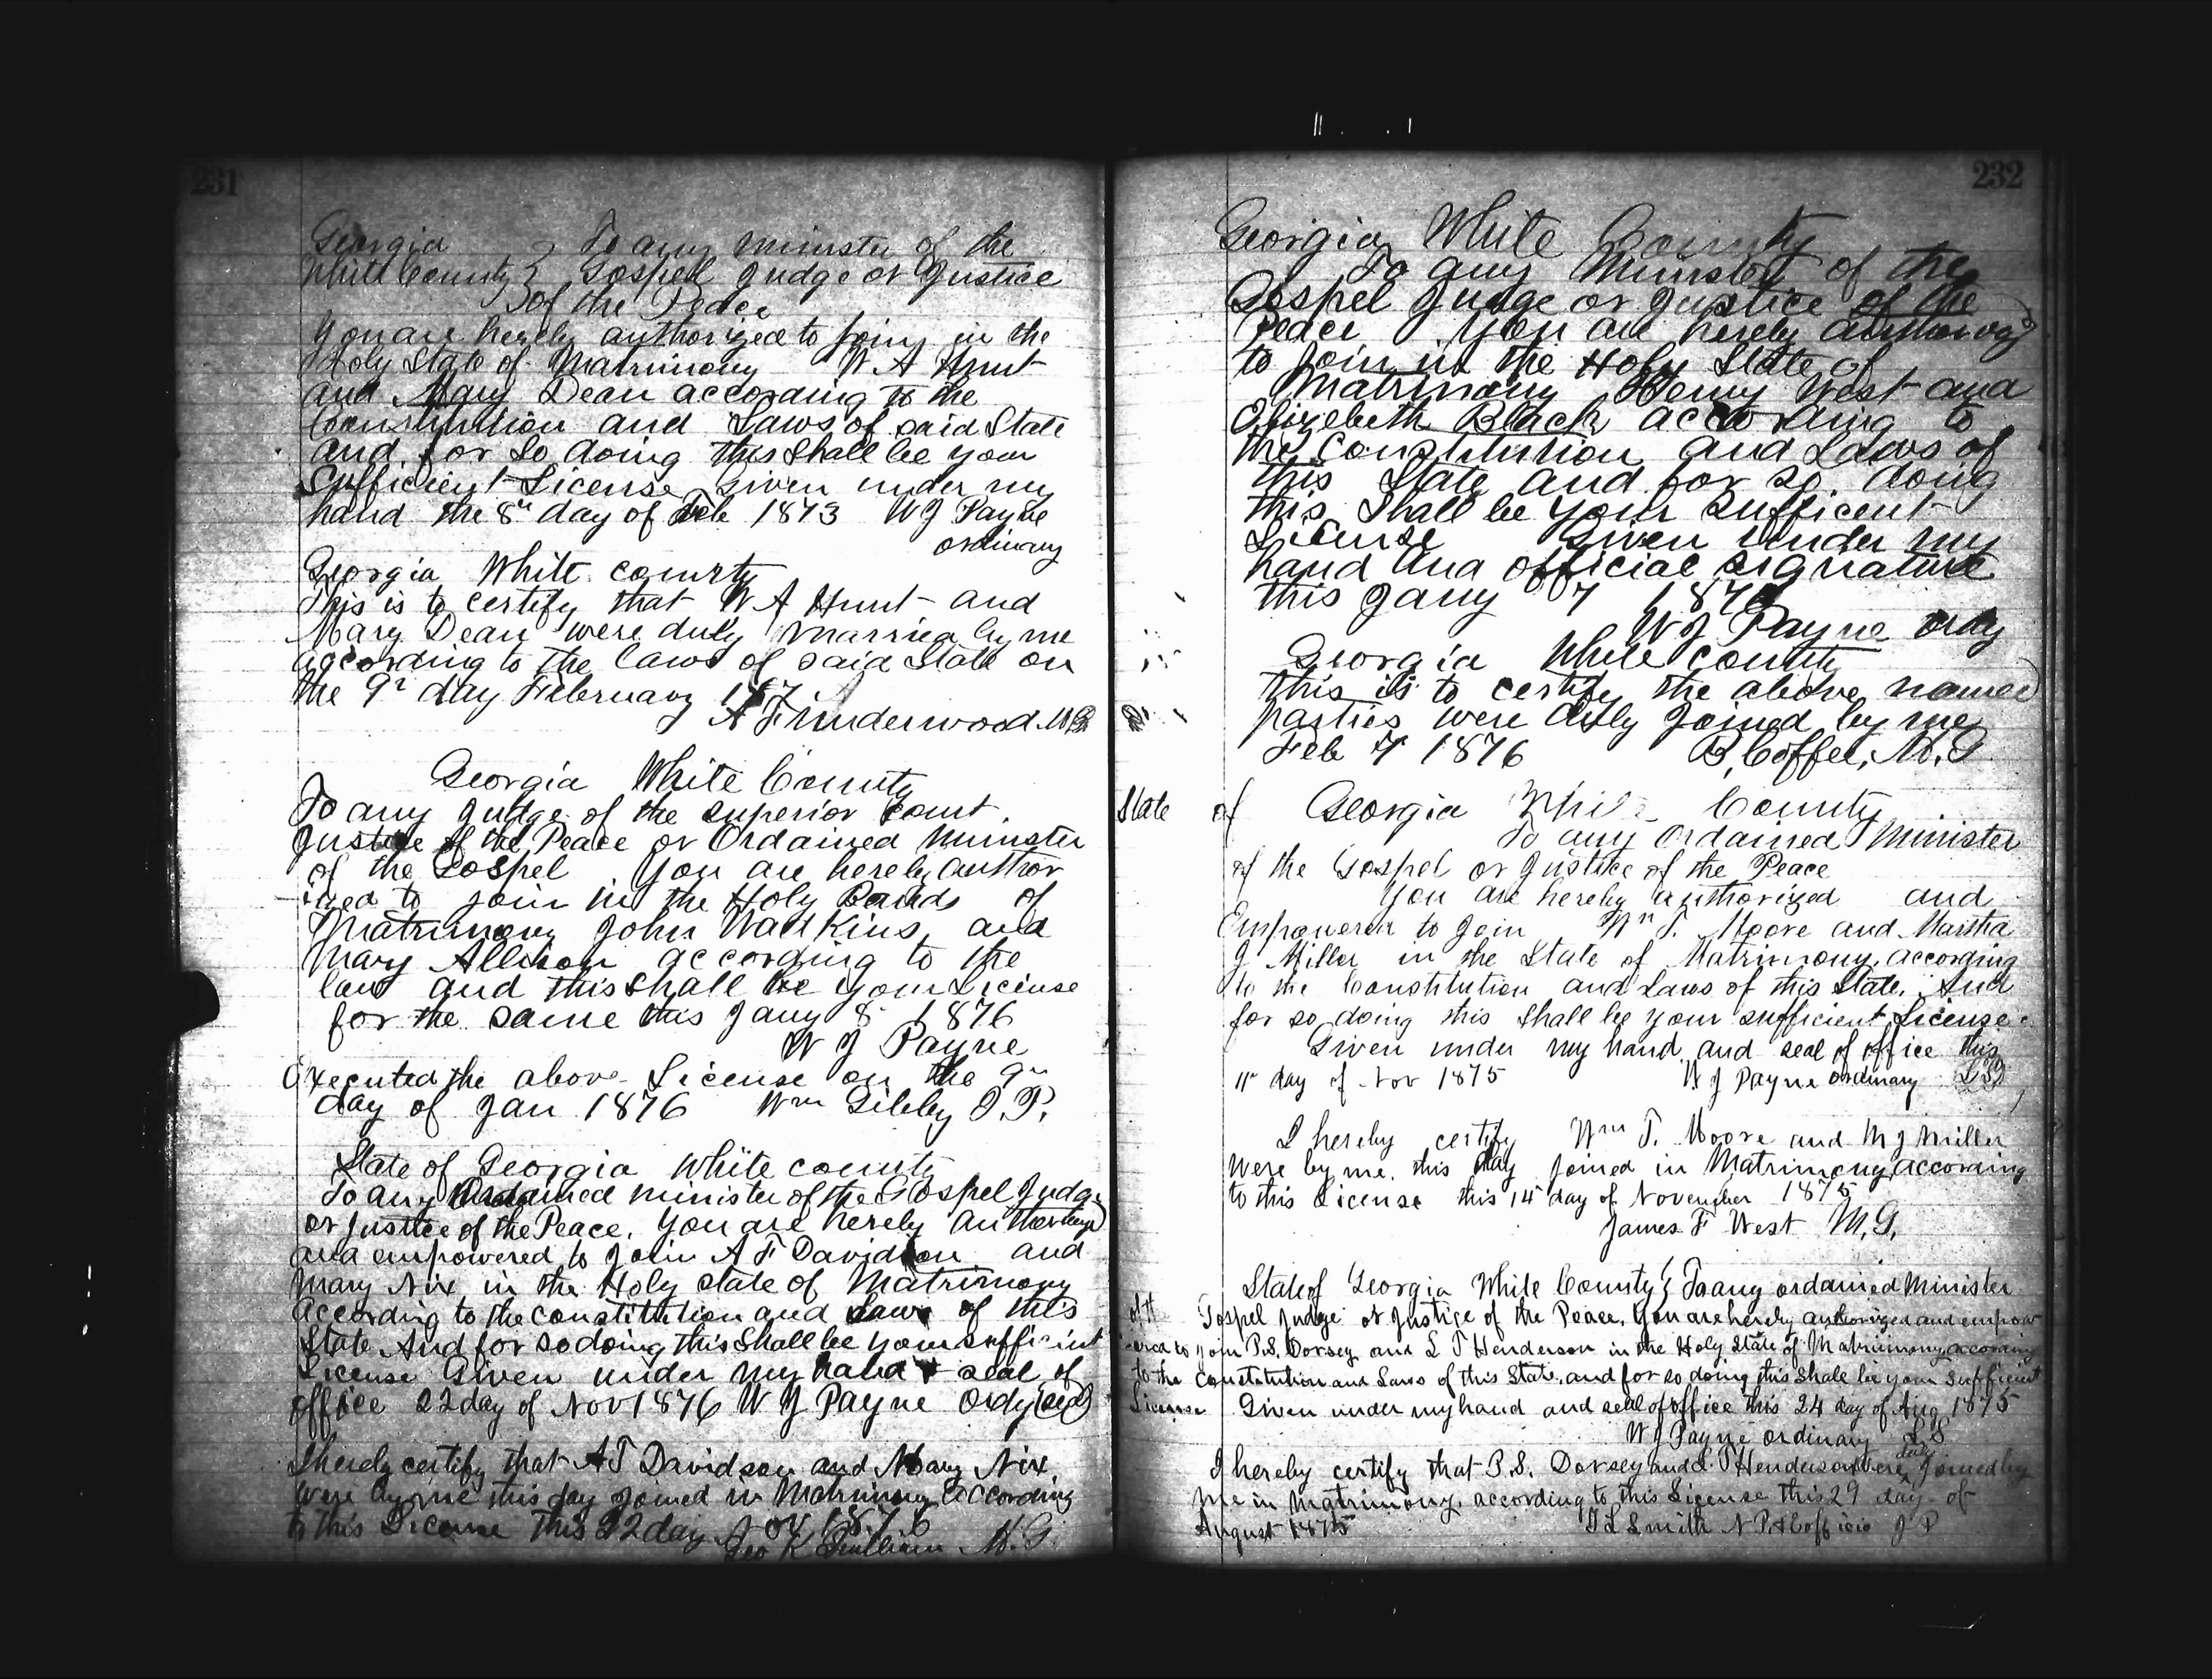 231
Georgia } To any Minister of the
White County } Gospel Judge or Justice
of the Peace
You are hereby authorized to join in the
Holy State of Matrimony W A Hunt
and Mary Dean according to the
Constitution and Laws of said State
and for so doing this shall be your
Sufficient License given under my
hand the 8th day of Feb 1873 W J Payne
ordinary
Georgia White county
This is to certify that W A Hunt and
Mary Dean were duly married by me
according to the laws of said State on
the 9th day February
A F Underwood M G
Georgia White County
To any Judge of the superior Court
Justice of the Peace or Ordained Minister
of the Gospel You are hereby author
-ized to join in the Holy Bands of
Matrimony John Wadkins and
Mary Allison according to the
law and this shall be your License
for the same this Jany 8 1876
W J Payne
Executed the above License on the 9th
day of Jan 1876 Wm Sibley J.P.
State of Georgia White county
To any Ordained minister of the Gospel Judge
or Justice of the Peace. You are hereby
and empowered to join A F Davidson and
Mary Nix in the Holy state of Matrimony
according to the constitution and laws of this
State And for so doing this shall be your sufficient
License Given under my hand & seal of
office 22 day of Nov 1876 W J Payne Ordy
I hereby certify that A F Davidson and Mary Nix
were by me this day joined in Matrimony according
to this License this 22 day Nov 1876
Geo K M.G.
232
Georgia White County
To any Minister of the
Gospel Judge or Justice of the
Peace You are hereby
to join in the Holy State of
Matrimony Henry West and
Elizebeth Black according to
the Constitution and Laws of
this State and for so doing
this Shall be your sufficent
License Given under my
hand and official signature
this Jany 7
W J Payne ordy
Georgia White county
this is to certify the above named
parties were duly joined by me
Feb 7 1876 B. Coffee, M.G
State of Georgia White County
To any Ordained Minister
of the Gospel or Justice of the Peace
You are hereby authorized and
Empowered to join Wm T. Moore and Martha
J Miller in the State of Matrimony, according
to the Constitution and Laws of this State. And
for so doing this shall be your sufficient License.
Given under my hand and seal of office this
11th day of Nov 1875 W J Payne ordinary
I hereby certify Wm T. Moore and M J Miller
were by me this day joined in Matrimony according
to this License this 14 day of November 1875
James F West M.G.
State of Georgia White County } To any ordained Minister
of the Gospel Judge or Justice of the Peace, You are hereby authorized and empow
-ered to join P.S. Dorsey and L T Henderson in the Holy State of Matrimony according
to the Constitution and Laws of this State, and for so doing this shall be your sufficient
License Given under my hand and seal of office this 24 day of Aug 1875
W J Payne ordinary L S
I hereby certify that P.S. Dorsey and L T Henderson were duly joined by
me in matrimony, according to this License this 29 day of
August 1875 Smith N P & Exofficio J P